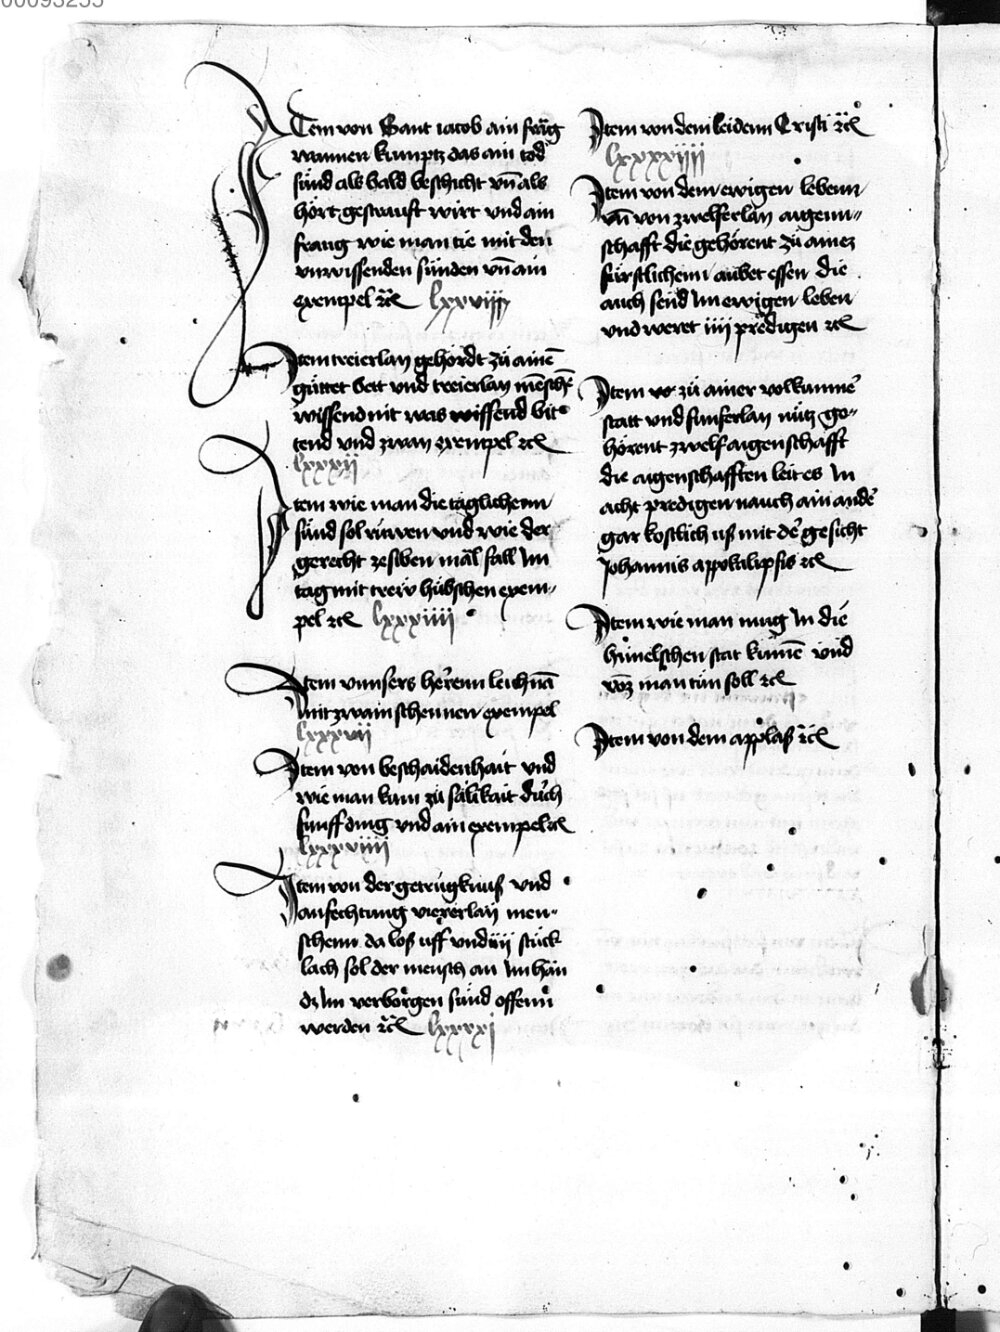 00093255
Item von Sant iacob ain frag
wannen kumptz das ain tod
sünd als bald beschicht vn̄ als
hört gestrauft wirt vnd ain
fraug wie man tie mit den
vnwissenden sünden vn̄ ain
exempel ꝛc̄ lxxviiij
Item treierlay gehördt zü aine
güttet bett vnd treierlay mēschē
wissend nit was wissend bit
tend vnd zwan exempel ꝛc
lxxxij
Item wie man die täglichenn
sünd sol rüwen vnd wie der
gerecht zesiben mäl fall Im
tag mit trein hübschen exem-
pel ꝛc lxxxiiii
Item vnnsers herrenn leichnā
mit zwain schennen exempel
lxxxvii
Item von beschaidenhait vnd
wie man kum zü sälikait durch
fünff ding vnd ain exempel ꝛc
lxxxviiii
Item von der getrügknuß vnd
anfechtung viererlay men-
schenn da loß uff vnd iiij stück
lach sol der mensch an Im hān
dz Im verborgen sünd offenn
werden ꝛc̄ lxxxxj
Item von dem leidenn Cristi ꝛc̄
lxxxxiiii
Item von dem ewigen lebenn
vn̄ von zwelferlay aigenn-
schafft die gehörent zü ainez
fürstlichenn aubet essen die
auch send Im ewigen leben
vnd weret iiij predigen ꝛc
Item vo zü ainer volkumne
statt vnd fünferlay nütz ge-
hörent zwelf aigenschafft
die aigenschafften leit es In
acht predigen nauch ain ander
gar kostlich uß mit der gesicht
Johannis appokalipsis ꝛc
Item wie man mug In die
himelschen stat kumē vnd
voz man tün soll ꝛc
Item von dem applaß ꝛc̄